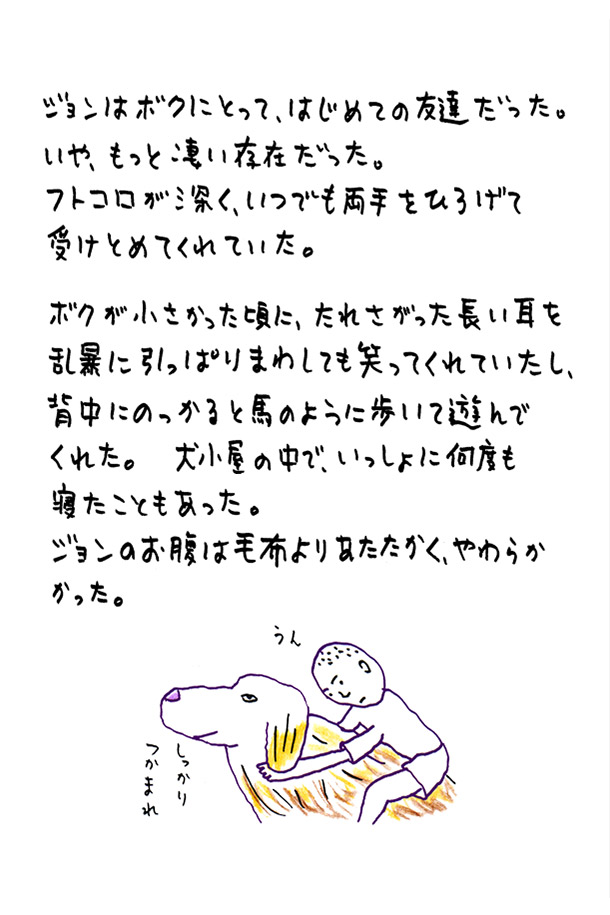 ジョンはボクにとって、はじめての友達だった。
いや、もっと凄い存在だった。
フトコロが深く、いつでも両手をひろげて
受けとめてくれていた。
ボクが小さかった頃に、たれさがった長い耳を
乱暴に引っぱりまわしても笑ってくれていたし、
背中にのっかると馬のように歩いて遊んで
くれた。 犬小屋の中で、いっしょに何度も
寝たこともあった。
ジョンのお腹は毛布よりあたたかく、やわらか
かった。
うん
しっかり
つかまれ